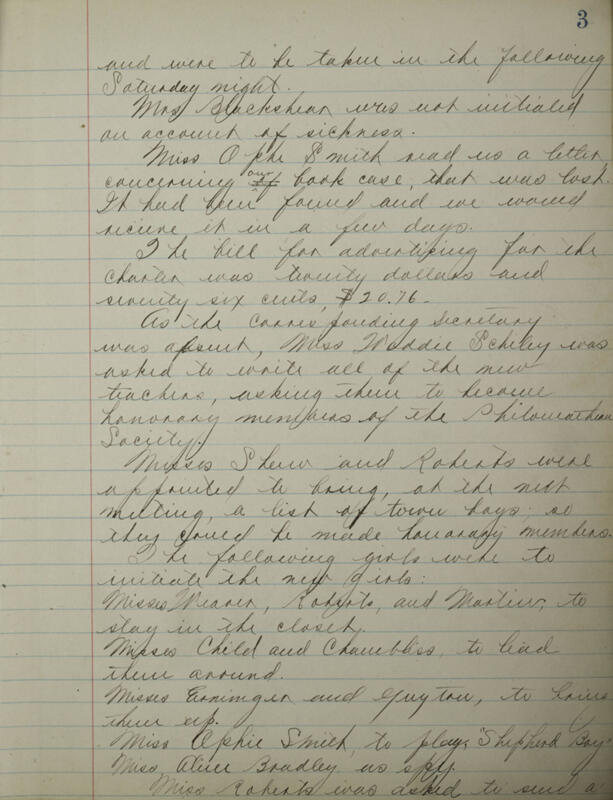 3
and were to be taken in the following
Saturday night.
Mrs Blackshear was not initiated
on account of sickness.
Miss Ophe Smith read us a letter,
concerning our book case, that was lost.
It had been found and we would
recieve it in a few days.
The bill for advertizing for the
charter was twenty dollars and
seventy six cents, $20.76-
As the Corresponding Secretary
was absent, Miss Weddie Schley was
asked to write all of the new
teachers, asking them to become
honorary members of the Philomathean
Society.
Misses Shew and Roberts were
appointed to bring, at the next
meeting, a list of town boys, so
they could be made honorary members.
The following girls were to
initiate the new girls:
Misses Weaver, Roberts, and Martin, to
stay in the closet.
Misses Child and Chambliss, to lead
them around.
Misses and Guyton, to
them up.
Miss Ophie Smith, to play, "Shepherd Boy"
Miss Aline Bradley as spy.
Miss Roberts was asked to send a